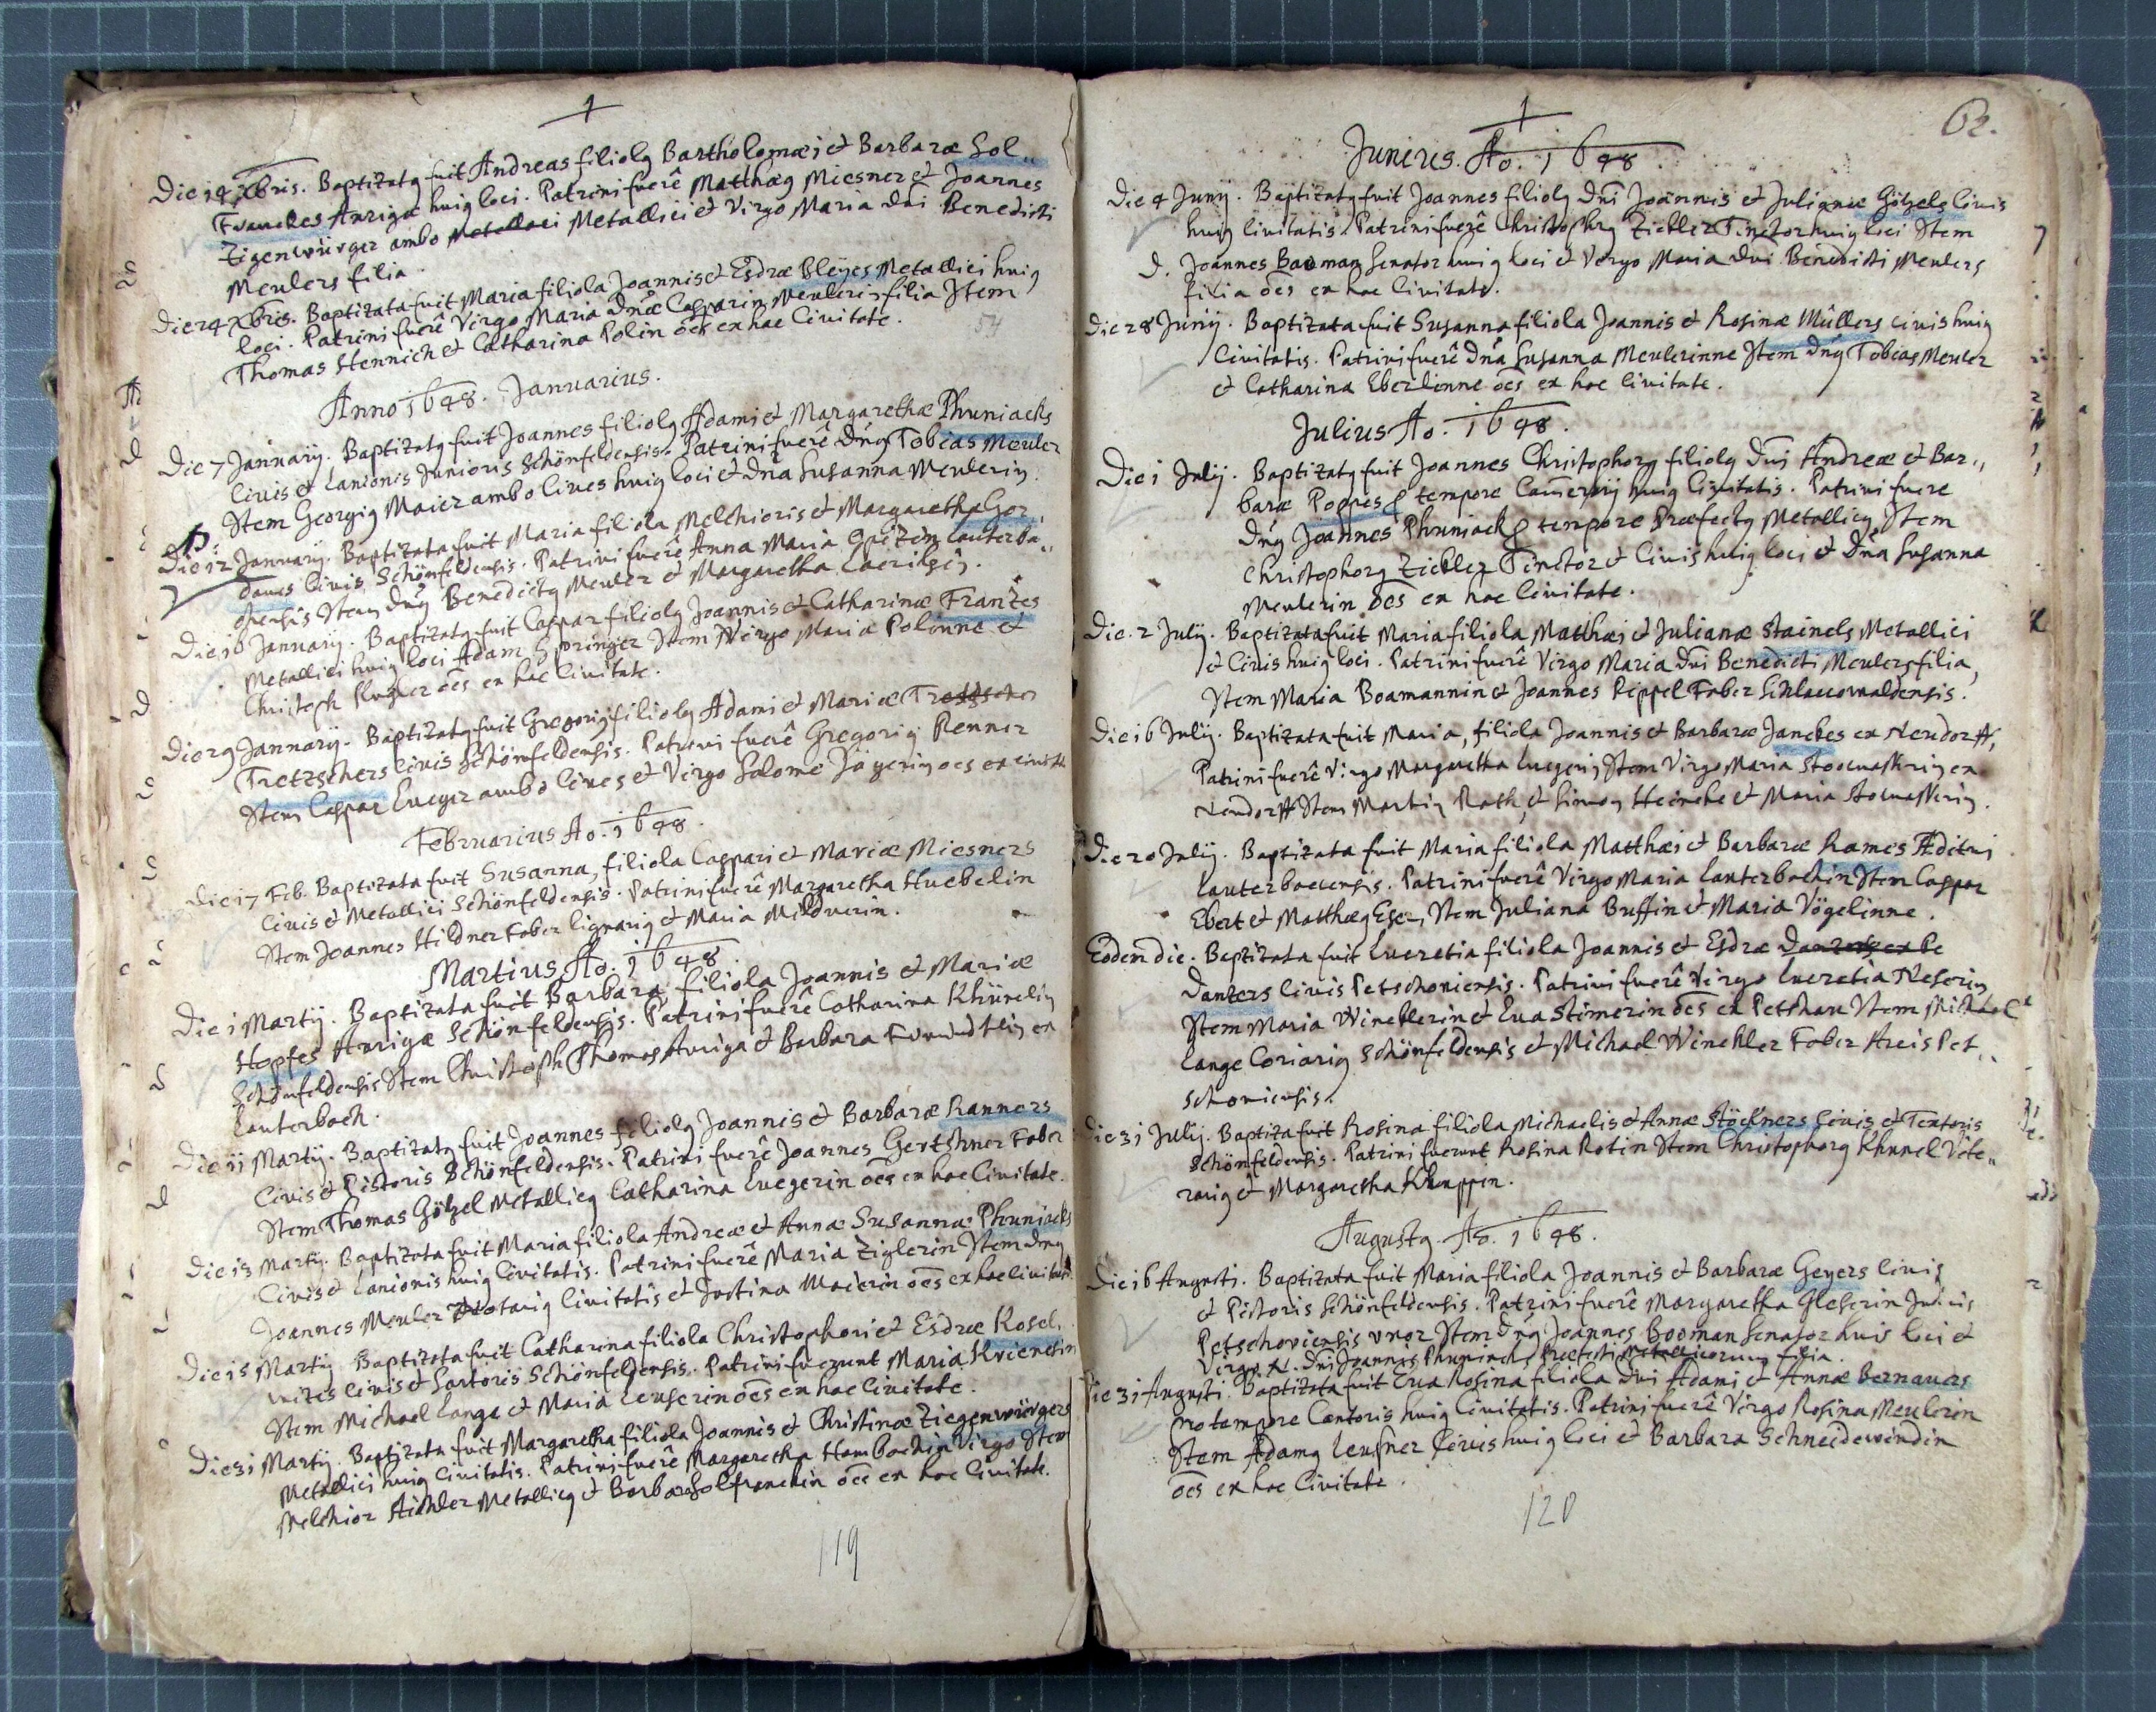 Die 14 Xbris. Baptizatg fuit Andreas filiolg Bartholomæi et Barbaræ Sol„
Franckes Aurigæ huig loci. Patrini fuerê Matthæg Miesner et Joannes
Zigenwürger ambo Metallici et Virgo Maria dni Benedicti
Meulers filia.
Die 24 Xbris. Baptizata fuit Maria filiola Joannis et Esdræ Bleyes Metallici huig
loci. Patrini fuerê Virgo Maria Dnæ Casparin Meulerin filia Item
Thomas Hennich et Catharina Polin oēs ex hac Civitate.
54
Anno 1648. Januarius.
Die 7 Januarij. Baptizatg fuit Joannes filiolg Adami et Margarethæ Phuniacks
Civis et Lanionis Junioris Schönfeldensis. Patrini fuerê Dng Tobias Meuler
Item Georgig Maier ambo Cives huig loci et Dna Susanna Meulerin.
Die 12 Januarij. Baptizata fuit Maria filiola Melchioris et Margaretha Gor„
Civis Schönfeldensis. Patrini fuerê Anna Maria Lauterba„
Item Dng Benedictg Meuler et Margaretha
Die 16 Januarij. Baptizatg fuit Caspar filiolg Joannis et Catharinæ Frantzes
Metallici huig loci Adam Springer Item Virgo Maria Polinne et
Christoph oēs ex hac Civitate.
Die 29 Januarij. Baptizatg fuit Gregorig filiolg Adami et Mariæ
Tretzschers civis Schönfeldensis. Patrini fuerê Gregorig Renner
Item Caspar Lueger ambo Cives et Virgo Salome Jägerin oēs ex civit
Februarius Ao. 1648.
Die 17 Feb. Baptizata fuit Susanna, filiola Caspari et Mariæ Miesners
Civis et Metallici Schönfeldensis. Patrini fuerê Margaretha Huebelin
Item Joannes Hildner Faber lignarig et Maria Mildnerin.
Martius Ao. 1648.
Die 1 Martij. Baptizata fuit Barbara filiola Joannis et Mariæ
Hopfes Aurigæ Schönfeldensis. Patrini fuerê Catharina Khünelin
Schönfeldensis Item Christoph Thomas Auriga et Barbara ex
Lauterbach.
Die 11 Martij. Baptizatg fuit Joannes filiolg Joannis et Barbaræ Ranners
Civis et Pistoris Schönfeldensis. Patrini fuerê Joannes Gertshner Faber
Item Thomas Götzel Metallicg Catharina Luegerin oēs ex hac Civitate.
Die 13 Martij. Baptizata fuit Maria filiola Andreæ et Annæ Susannæ Phuniacks
Civis et Lanionis huig Civitatis. Patrini fuerê Maria Ziglerin Item Dng
Joannes Meuler Notarig Civitatis et Justina Maierin oēs ex hac Civitate.
Die 15 Martij Baptizata fuit Catharina filiola Christophori et Esdræ Kosel„
civis et Sartoris Schönfeldensis. Patrini fuerunt Maria Krienesin
Item Michael Lange et Maria Leuserin oēs ex hac Civitate.
Die 31 Martij. Baptizata fuit Margaretha filiola Joannis et Christinæ Ziegenwürgers
Metallici huig Civitatis. Patrini fuerê Margaretha Hambachin Virgo Item
Melchior Aichler Metallicg et Barbara Solfranckin oēs ex hac Civitate.
119
62.
Junius. Ao. 1648.
Die 4 Junij. Baptizatg fuit Joannes filiolg Dni Joannis et Julianæ Götzels Civis
huig Civitatis. Patrini fuerê Christophrg Zickler Tinctor huig loci Item
D. Joannes Baoman Senator huig loci et Virgo Maria Dni Benedicti Meulers
filia oēs ex hac Civitate.
Die 28 Junij. Baptizata fuit Susanna filiola Joannis et Rosinæ Müllers civis huig
Civitatis. Patrini fuerê Dna Susanna Meulerinne Item Dng Tobias Meuler
et Catharina Eberlinne oēs ex hac Civitate.
Julius Ao. 1648.
Die 1 Julij. Baptizatg fuit Joannes Christophorg filiolg Dni Andreæ et Bar„
baræ Poppes tempore Camerarij huig Civitatis. Patrini fuere
Dng Joannes Phuniack tempore Præfectg Metallicg Item
Christophorg Zickler Tinctor et Civis huig loci et Dna Susanna
Meulerin oēs ex hac Civitate.
Die. 2 Julij. Baptizata fuit Maria filiola Matthæi et Julianæ Stainels Metallici
et Civis huig loci. Patrini fuerê Virgo Maria Dni Benedicti Meulers filia,
Item Maria Boamannin et Joannes Pippel Faber Schlaccowaldensis.
Die 16 Julij. Baptizata fuit Maria, filiola Joannis et Barbaræ Janckes ex Neudorff,
Patrini fuerê Virgo Margaretha Luegerin Item Virgo Maria ex
Neudorff Item Martin Roth, et Simon Heincke et Maria
Die 20 Julij. Baptizata fuit Maria filiola Matthæi et Barbaræ Rames Æditui
Lauterbacensis. Patrini fuerê Virgo Maria Lauterbachin Item Caspar
Ebert et Matthæg Eser, Item Juliana Buffin et Maria Vögelinne.
Eodem die. Baptizata fuit Lucretia filiola Joannis et Esdræ
Dantzers Civis Petschoviensis. Patrini fuerê Virgo Lucretia Neserin
Item Maria Wincklerin et Eua Stimerin oēs ex Petschau Item Michael
Lange Coriarig Schönfeldensis et Michael Winckler Faber Aeris Pet„
schoviensis.
Die 31 Julij. Baptiza fuit Rosina filiola Michaelis et Annæ Stöckners Civis et Textoris
Schönfeldensis. Patrini fuerunt Rosina Rotin Item Christophorg Khunel Vete„
rarig et Margaretha Khnppin.
Augustg. Ao. 1648.
Die 16 Augusti. Baptizata fuit Maria filiola Joannis et Barbaræ Geyers Civis
et Pistoris Schönfeldensis. Patrini fuerê Margaretha Gleserin
Petschoviensis vxor Item Dng Joannes Booman Senator huis loci et
Virgo N. Dni Joannis Phuniack Præfecti Metallicorum filia.
Die 31 Augusti. Baptizata fuit Eua Rosina filiola Dni Adami et Annæ Bernauers
pro tempore Cantoris huig Civitatis. Patrini fuerê Virgo Rosina Meulerin
Item Adamg Leusner Civis huig loci et Barbara Schneidewindin
oēs ex hac Civitate.
120